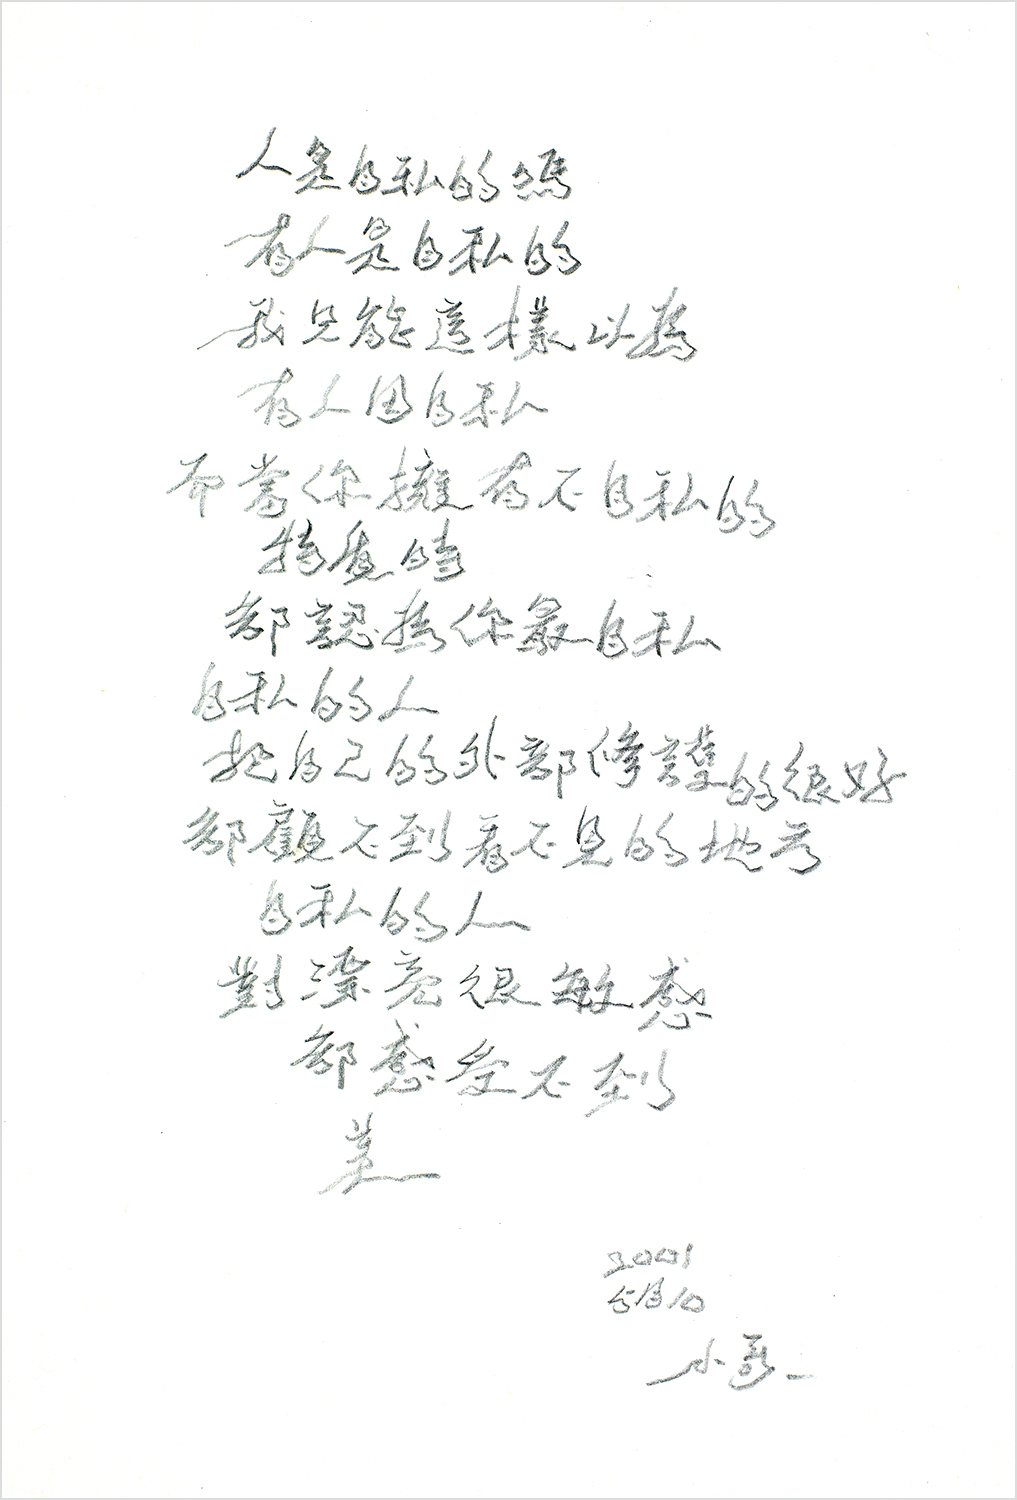 人是自私的嗎
有人是自私的
我只能這樣以為
有人因自私
而當你擁有不自私的
特質時
卻認為你最自私
自私的人
把自己的外部修護的很好
卻顧不到看不見的地方
自私的人
對漂亮很敏感
卻感受不到
美
2001
5月10
小